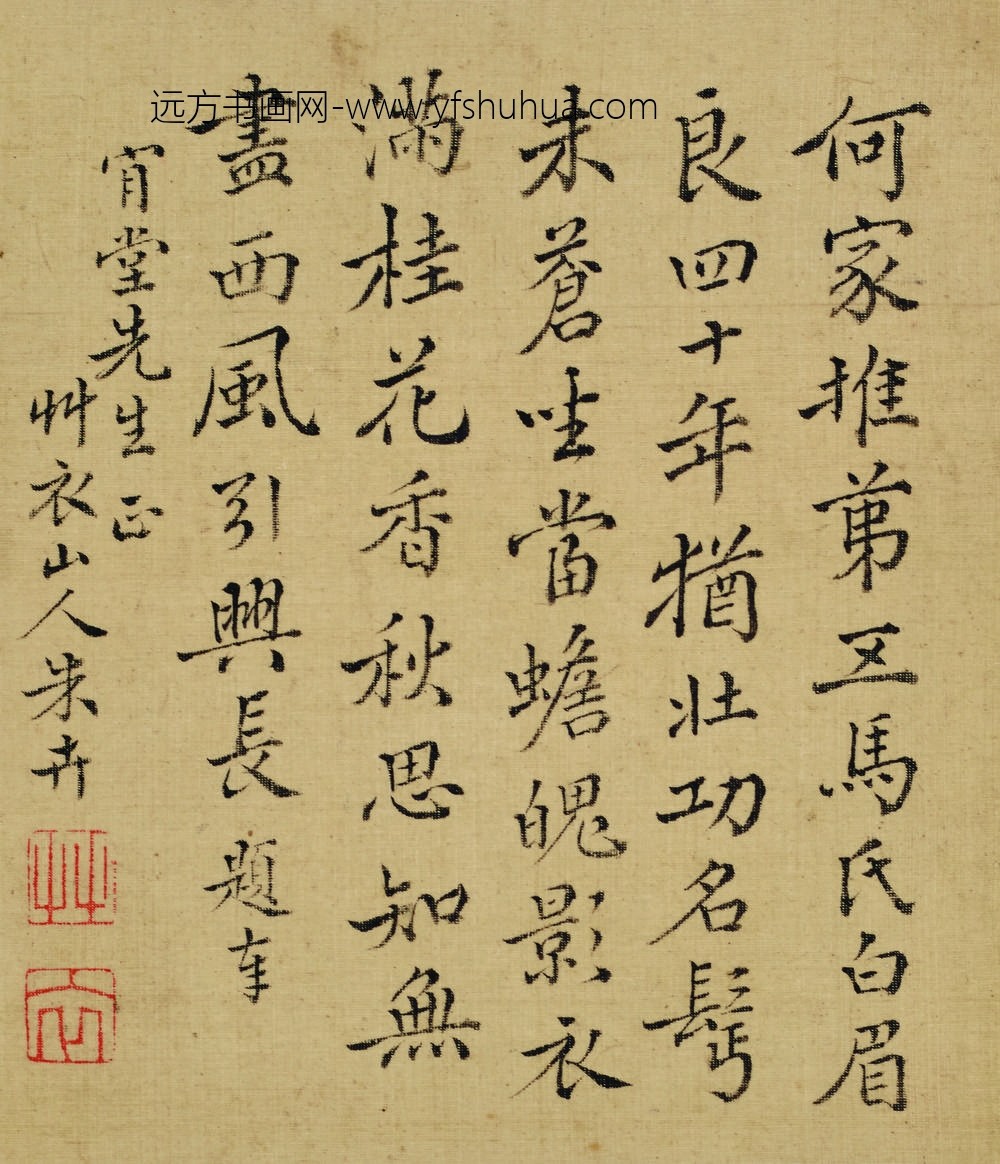 何家推苐五馬氏白眉
良四十年猶壯功名鬢
未蒼坐當蟾魄影衣
滿桂花香秋思知無
盡西風引興長題奉
宵堂先生正
艸衣山人朱卉
艸
衣
远方书画网-www.yfshuhua.com